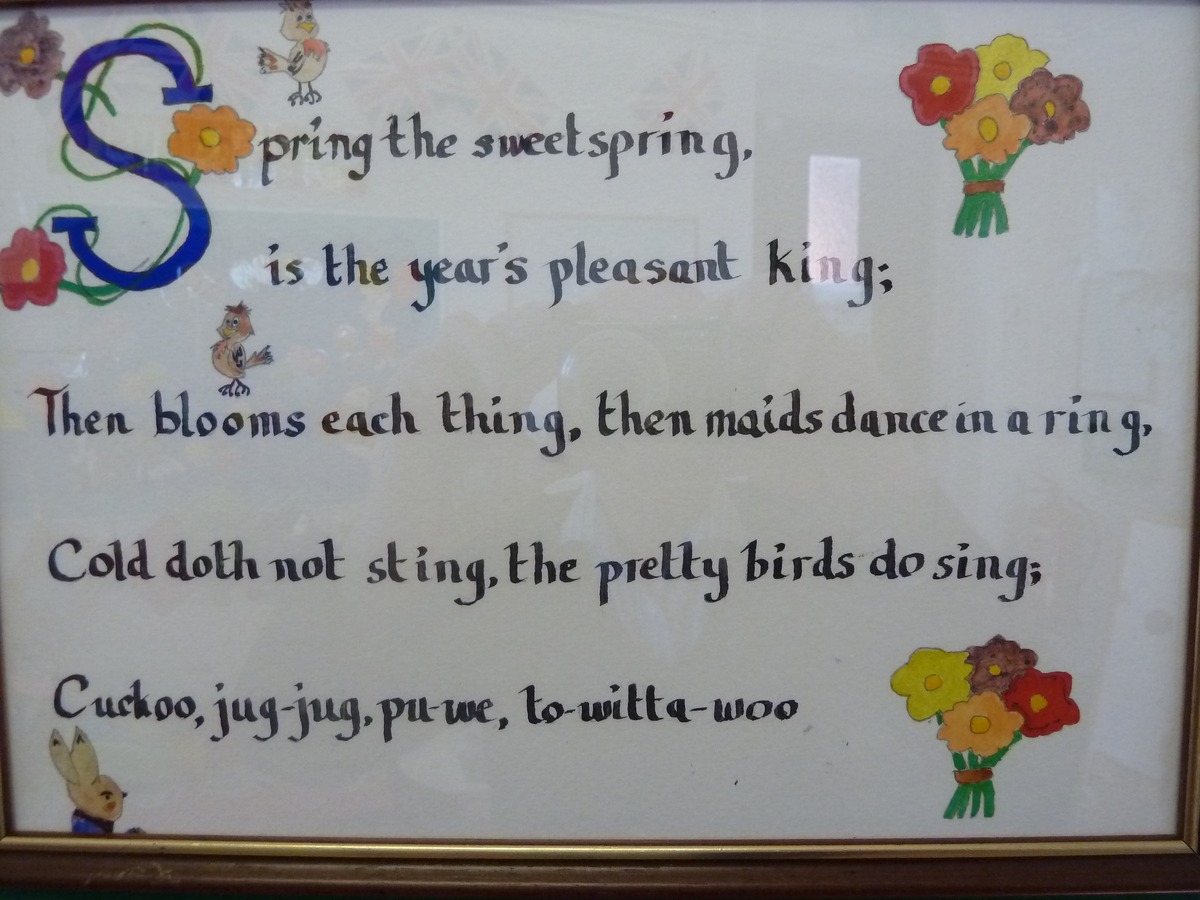 Spring the sweet spring,
is the year's pleasant king;
Then blooms each thing, then maids dance in a ring,
Cold doth not sting, the pretty birds do sing;
Cuckoo, jug-jug, pu-we, to-witta-woo